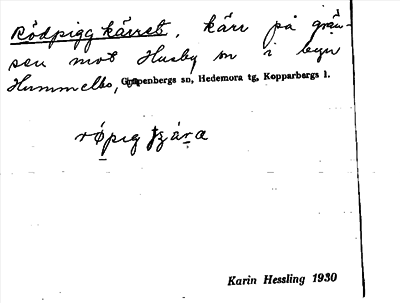 Rödpiggkärret, kärr på grän-
sen mot Husby sn i byn
Hummelbo, Garpenbergs sn, Hedemora tg, Kopparbergs l.
Karin Hessling 1930